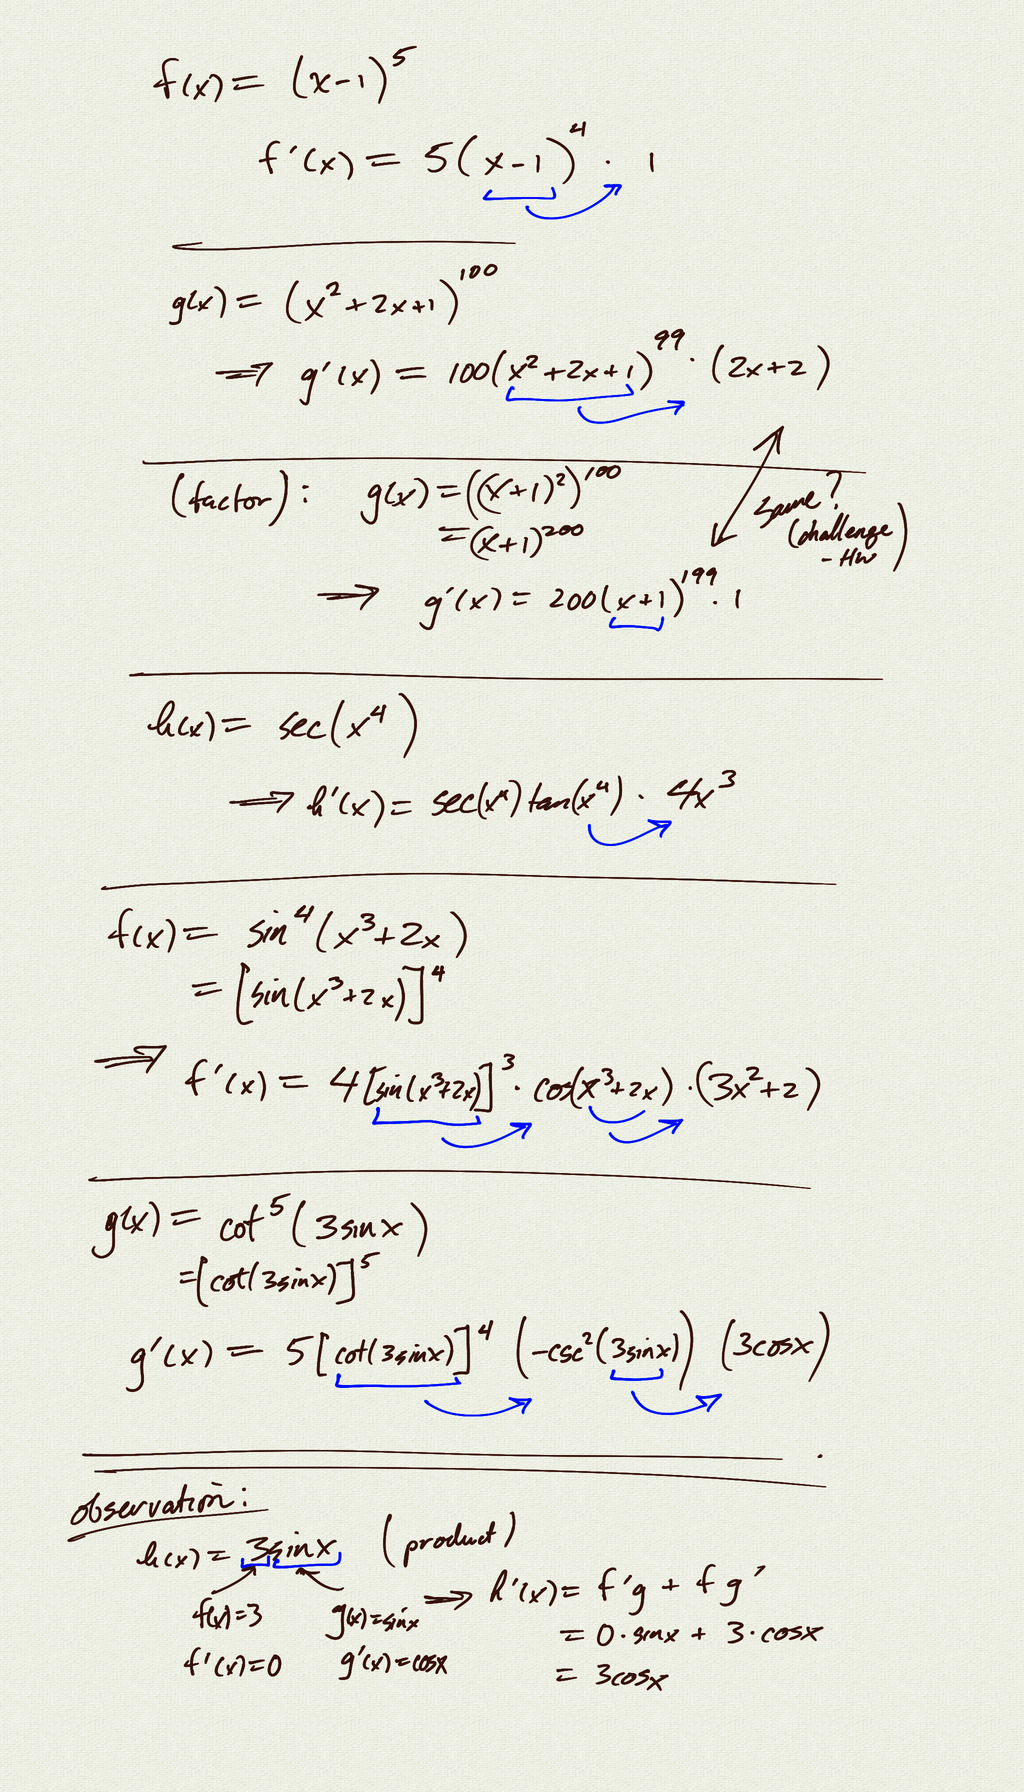 f(x) = (x-1)^5
f'(x) = 5(x-1)^4 · 1
g(x) = (x^2+2x+1)^100
⇒ g'(x) = 100(x^2+2x+1)^99 · (2x+2)
(factor): g(x) = ((x+1)^2)^100
= (x+1)^200
same?
(challenge
- HW)
⇒ g'(x) = 200(x+1)^199 · 1
h(x) = sec(x^4)
⇒ h'(x) = sec(x^4)tan(x^4) · 4x^3
f(x) = sin^4(x^3+2x)
= [sin(x^3+2x)]^4
⇒ f'(x) = 4[sin(x^3+2x)]^3 · cos(x^3+2x) · (3x^2+2)
g(x) = cot^5(3sinx)
= [cot(3sinx)]^5
g'(x) = 5[cot(3sinx)]^4 (-csc^2(3sinx)) (3cosx)
observation:
h(x) = 3sinx (product)
f(x)=3 g(x)=sinx
f'(x)=0 g'(x)=cosx
⇒ h'(x) = f'g + fg'
= 0·sinx + 3·cosx
= 3cosx